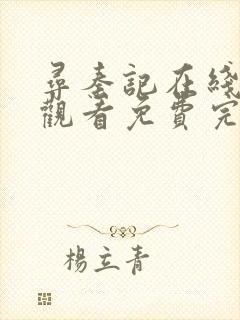 尋秦記在綫
觀看免費完
楊立青